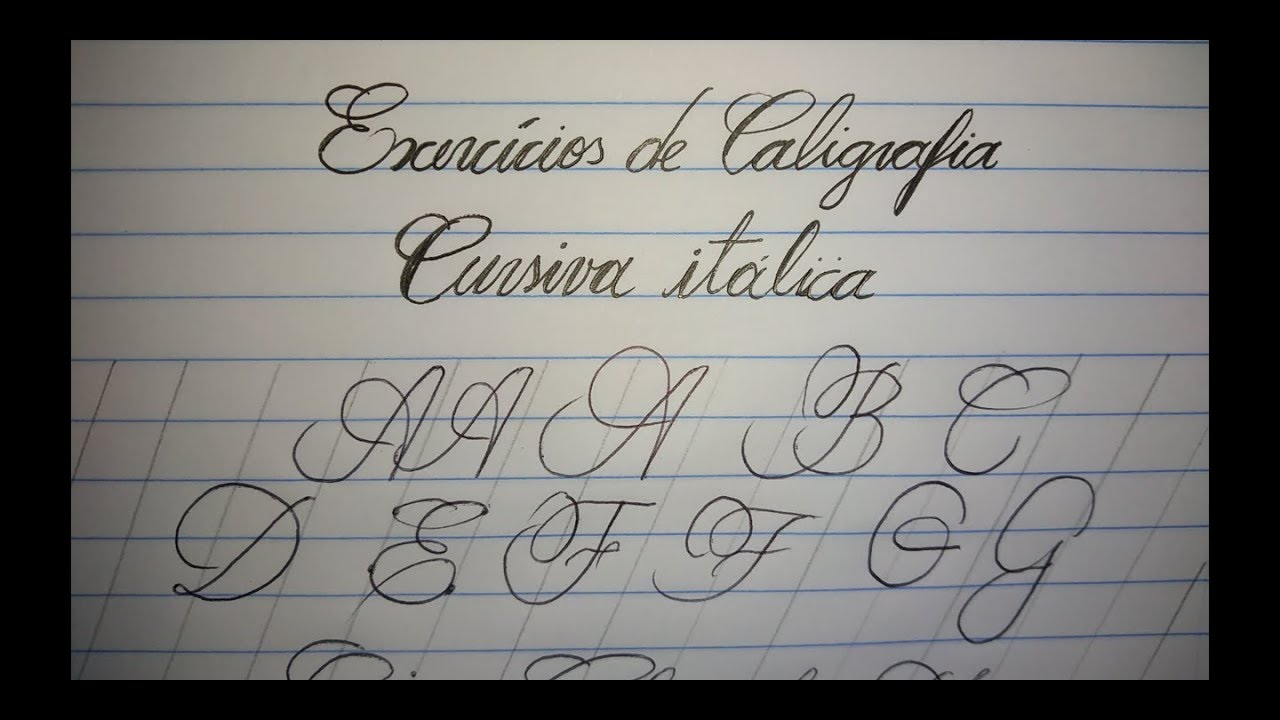 Exercícios de Caligrafia
Cursiva itálica
A A A B C
D E F F G G